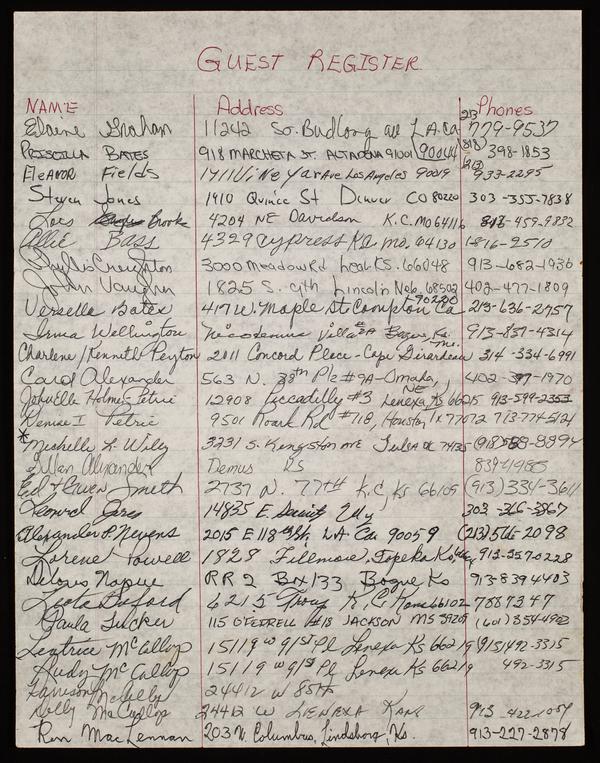 GUEST REGISTER
NAME Address Phones
Elaine Graham 11242 So. Budlong ave L.A. Ca 213 779-9537
PRISCILLA BATES 918 MARCHETA ST. ALTADENA 91001 90044 (818) 398-1853
EleANOR Fields Ave Los Angeles 90019 (213) 933-2295
Steven Jones 1910 Quince St Denver CO 80220 303-355-7838
Lois Brooks 4204 NE Davidson K.C. MO 64116 816-459-9832
Allie Bass 4329 Cypress Ka. mo. 64130 1-816-2510
Phyllis Creighton 3000 Meadow Rd Leav. Ks. 66048 913-682-1936
John Vaughn 1825 S. Lincoln Neb. 68502 402-477-1809
Versella Bates 417 W. Maple St Compton Ca 90220 213-636-2757
Irma Wellington Nicodemus Villa #2A Bogue, Ka. 913-837-4314
Charlene/Kenneth Peyton 2011 Concord Place - Cape Girardeau Mo. 314-334-6991
Carol Alexander 563 N. 38th Plz #9A - Omaha, NE 402- -1970
Johnella Holmes-Petrie 12908 Piccadilly #3 Lenexa, Ks 66215 913-599-2353
Denise I Petrie 9501 Roark Rd #718, Houston Tx 77072 713-774-5121
* Michelle L. Wiley 3231 S. Kingston Ave Tulsa OK 74135 (918) -8894
Alexander Ks
Ed & Gwen Smith 2737 N. 77th K.C, Ks 66109 (913) 334-3611
14835 E. 303
Alexander P. Nevens 2015 E 118th St. LA Ca. 90059 (213) 566-2098
Lorene Powell 1828 Fillmore, Topeka Ks, 913-357-0228
Deloris Napue RR2 Box 133 Bogue Ks 913-839 4403
Leota Buford 6215 K.C. Kans 66102 7887347
Paula Tucker #18 JACKSON MS 39209 (601)
Leatrice McCullop 15119 W 91st Pl Lenexa Ks 66219 (913) 492-3315
Rudy McCullop 15119 W 91st Pl Lenexa Ks 66219 492-3315
Harrison McCullop 24412 W 85th
Dolly McCullop 24412 W LENEXA Kans 913 422-1054
Ron MacLennan 203 N. Columbus, Lindsborg, Ks. 913-227-2878